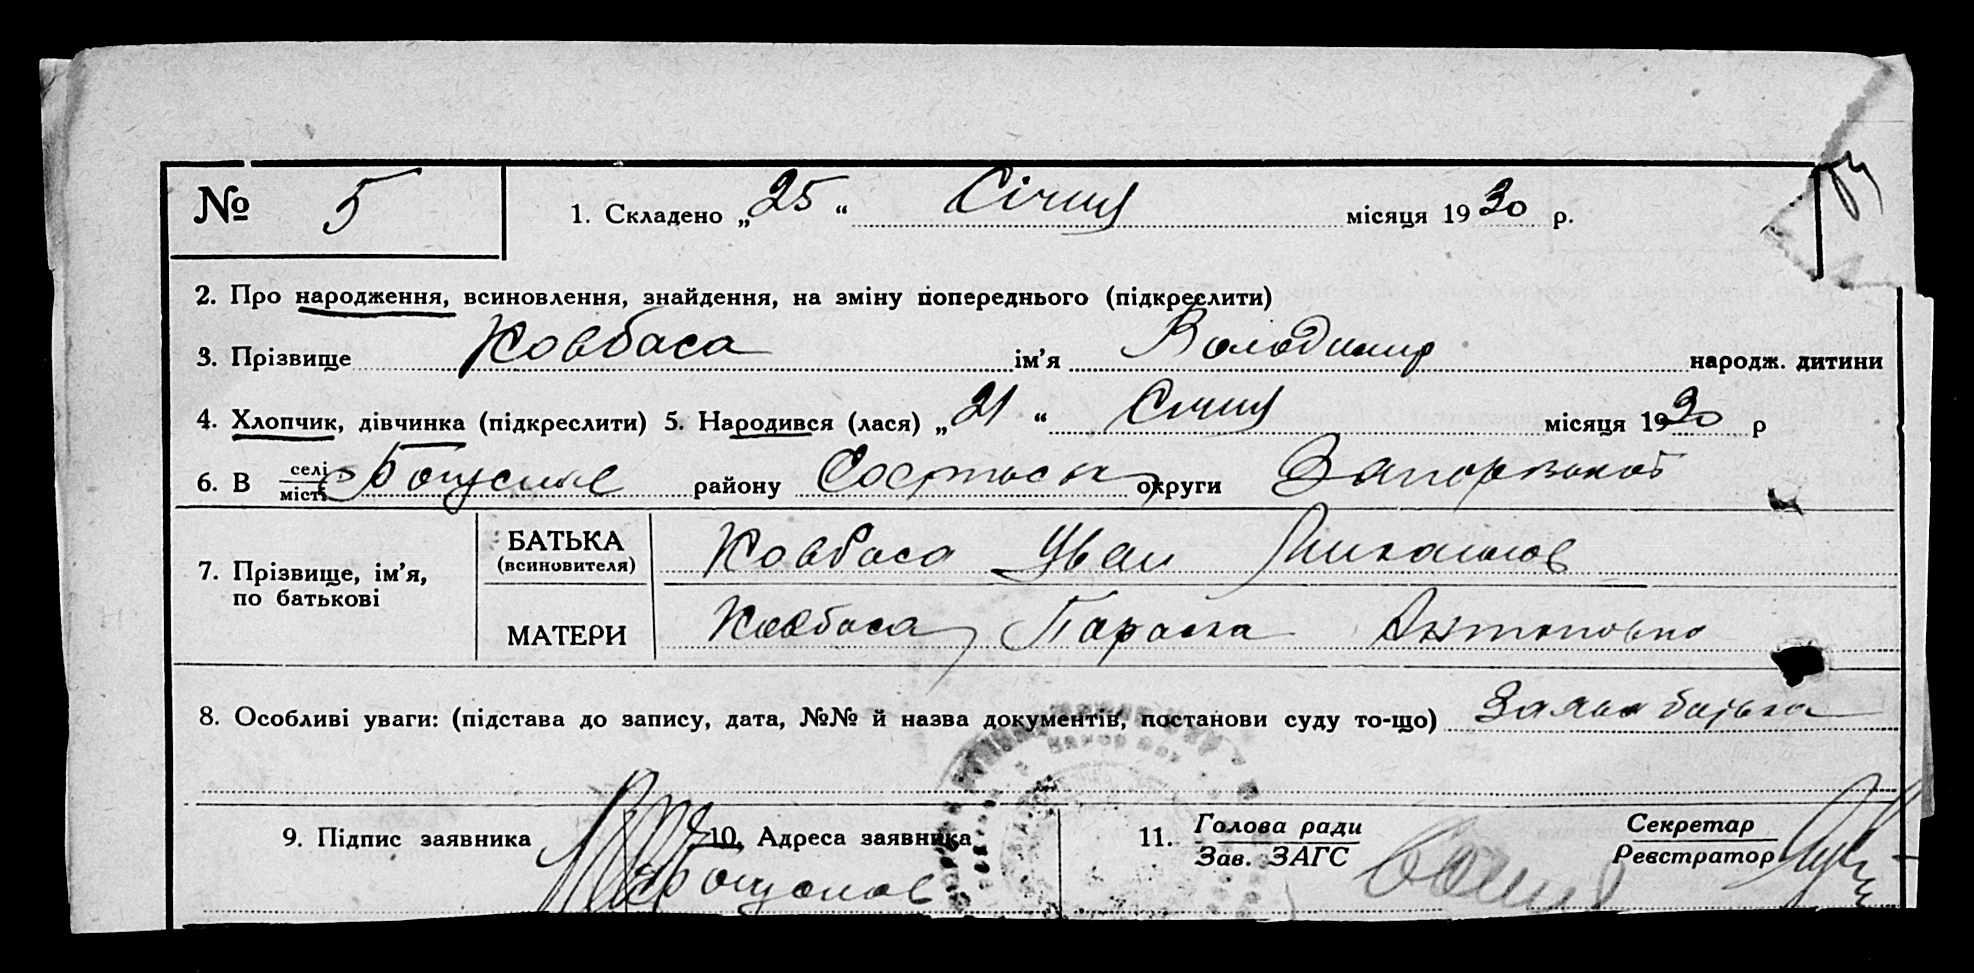 № 5 1. Складено „25“ Січня місяця 1930 р.
2. Про народження, всиновлення, знайдення, на зміну попереднього (підкреслити)
3. Прізвище Ковбаса ім’я Володимир народж. дитини
4. Хлопчик, дівчинка (підкреслити) 5. Народився (лася) „21“ Січня місяця 1930 р
6. В селі місті району округи
7. Прізвище, ім’я, по батькові
БАТЬКА (всиновителя) Ковбаса Иван
МАТЕРИ Ковбаса Параска Антоновна
8. Особливі уваги: (підстава до запису, дата, №№ й назва документів, постанови суду то-що) Заява батька
9. Підпис заявника 10. Адреса заявника 11. Голова ради Зав. ЗАГС Секретар Реєстратор